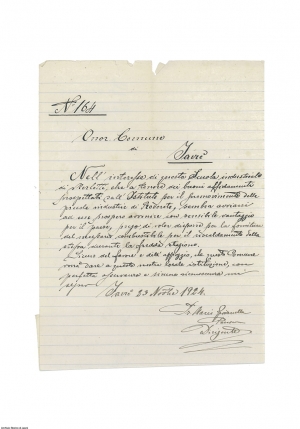 No 164
Onor Comune
di
Javrè
Nell' interesse di questa Scuola industriale
di Merletti, che a tenore dei buoni affidamenti
prospettati dall' Istituto per il promovimento delle
piccole industrie di Rovereto, sembra avviarsi
ad un prospero avvenire con sensibile vantaggio
per il paese, prego di voler disporre per la fornitura
del necessario combustibile per il riscaldamento della
stufa durante la fredda stagione.
Sicuro del favore e dell' appoggio, che questo Comune
vorrà dare a questa nostra locale istituzione, con
perfetta osservanza e
Javrè 23 Novbre 1924.
Dirigente